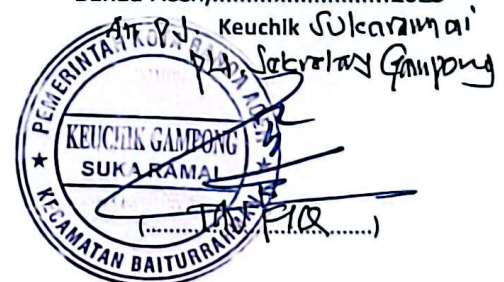 Banda Aceh,..............................2025
An. PJ. Keuchik Sukaramai
Plh. Sekretaris Gampong
PEMERINTAH KOTA BANDA ACEH
KEUCHIK GAMPONG
SUKA RAMAI
KECAMATAN BAITURRAHMAN
(....................)